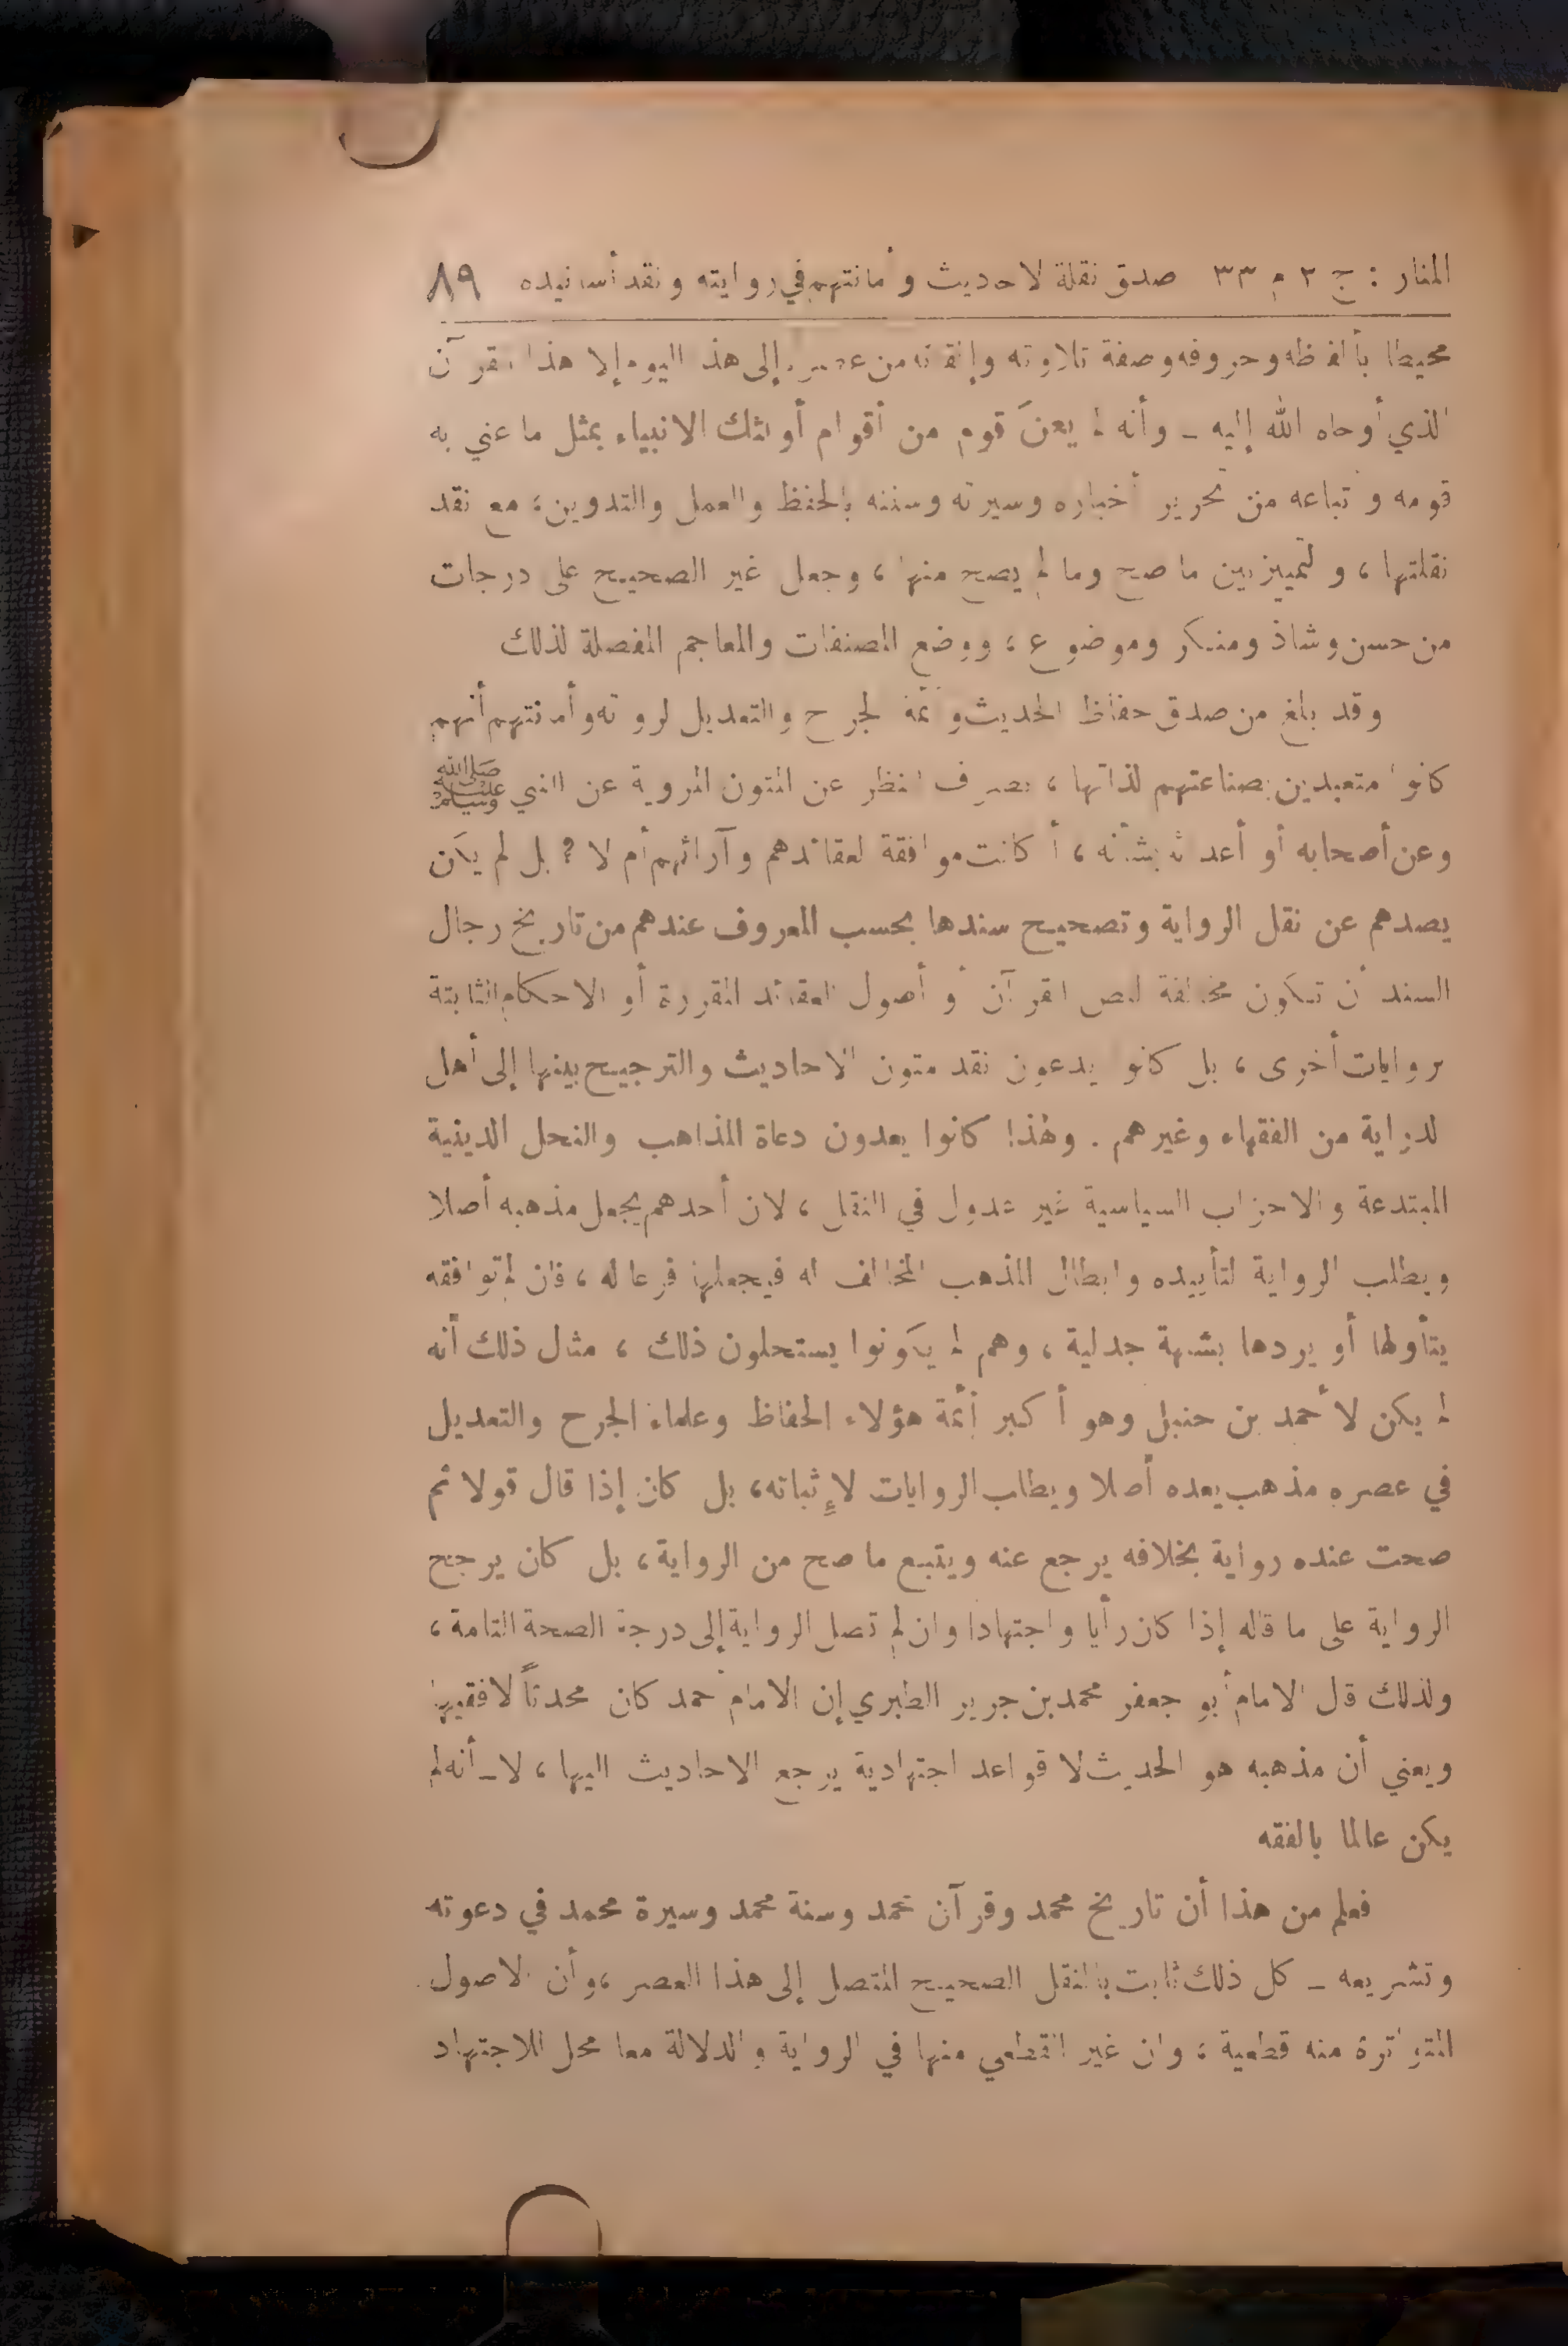 المنار : ج ٢ م ٣٣ صدق نقلة الاحاديث وأمانتهم في روايته ونقد أسانيده ٨٩
محيطا بألفاظه وحروفه وصفة تلاوته وإتقانه من عصره إلى هذا اليوم إلا هذا القرآن
الذي أوحاه الله إليه ــ وأنه لم يعنَ قوم من أقوام أولئك الانبياء بمثل ما عني به
قومه وأتباعه من تحرير أخباره وسيرته وسننه بالحفظ والعمل والتدوين ، مع نقد
نقلتها ، والتمييز بين ما صح وما لم يصح منها ، وجعل غير الصحيح على درجات
من حسن وشاذ ومنكر وموضوع ، ووضع المصنفات والمعاجم المفصلة لذلك
وقد بلغ من صدق حفاظ الحديث وأئمة الجرح والتعديل لرواته وأمانتهم أنهم
كانوا متعبدين بصناعتهم لذاتها ، بصرف النظر عن المتون المروية عن النبي ﷺ
وعن أصحابه أو أعدائه بشأنه ، أكانت موافقة لعقائدهم وآرائهم أم لا ? بل لم يكن
يصدهم عن نقل الرواية وتصحيح سندها بحسب المعروف عندهم من تاريخ رجال
السند أن تكون مخالفة لنص القرآن أو أصول العقائد المقررة أو الاحكام الثابتة
بروايات أخرى ، بل كانوا يدعون نقد متون الاحاديث والترجيح بينها إلى أهل
الدراية من الفقهاء وغيرهم . ولهذا كانوا يعدون دعاة المذاهب والنحل الدينية
المبتدعة والاحزاب السياسية غير عدول في النقل ، لان أحدهم يجعل مذهبه أصلا
ويطلب الرواية لتأييده وابطال المذهب المخالف له فيجعلها فرعا له ، فان لم توافقه
يتأولها أو يردها بشبهة جدلية ، وهم لم يكونوا يستحلون ذلك ، مثال ذلك أنه
لم يكن لأحمد بن حنبل وهو أكبر أئمة هؤلاء الحفاظ وعلماء الجرح والتعديل
في عصره مذهب يعده أصلا ويطلب الروايات لإثباته ، بل كان إذا قال قولا ثم
صحت عنده رواية بخلافه يرجع عنه ويتبع ما صح من الرواية ، بل كان يرجح
الرواية على ما قاله إذا كان رأيا واجتهادا وان لم تصل الرواية إلى درجة الصحة التامة ،
ولذلك قال الامام أبو جعفر محمد بن جرير الطبري إن الامام أحمد كان محدثاً لا فقيها
ويعني أن مذهبه هو الحديث لا قواعد اجتهادية يرجع الاحاديث اليها ، لا ــ أنه لم
يكن عالما بالفقه
فعلم من هذا أن تاريخ محمد وقرآن محمد وسنة محمد وسيرة محمد في دعوته
وتشريعه ــ كل ذلك ثابت بالنقل الصحيح المتصل إلى هذا العصر ، وأن الاصول
المتواترة منه قطعية ، وان غير القطعي منها في الرواية والدلالة معا محل للاجتهاد